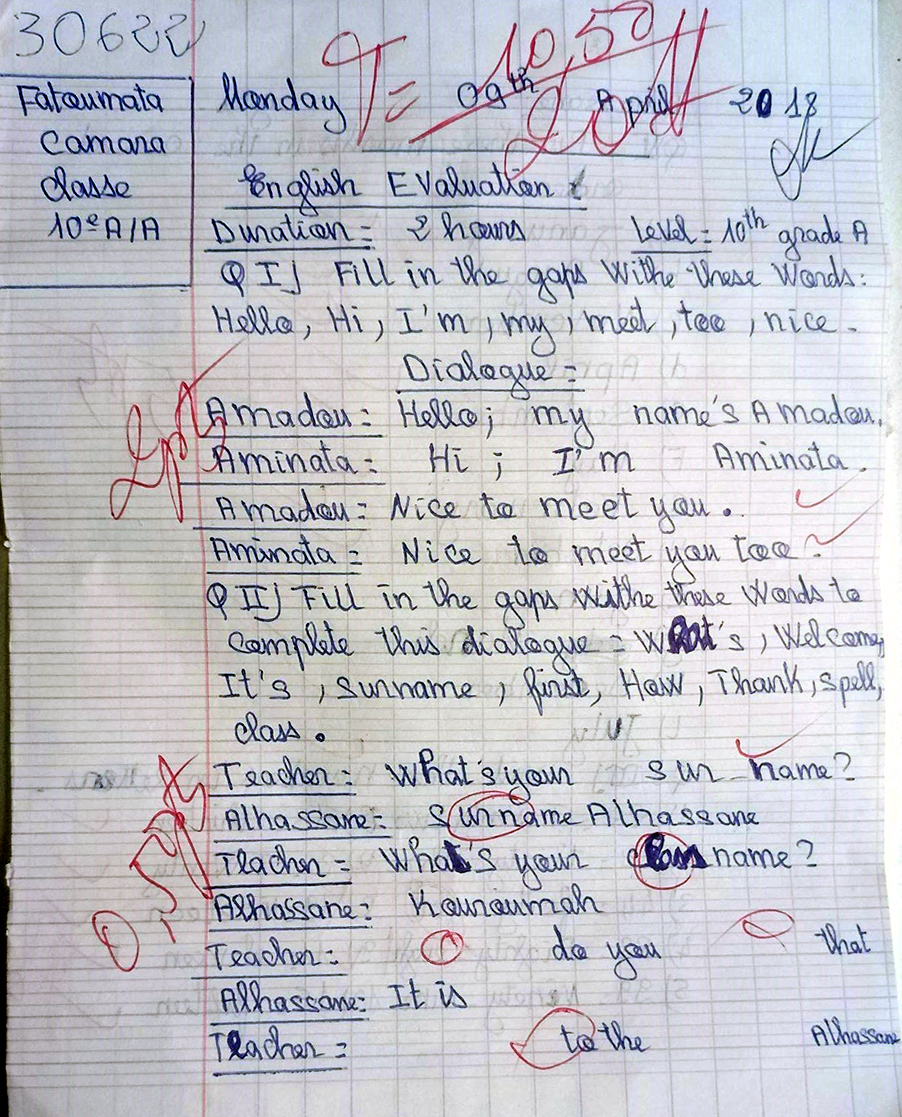 30622
T = 10,50
20
Fatoumata
Camara
classe
10e A/A
Monday 09th April 2018
English Evaluation :
Duration = 2 hours Level = 10th grade A
Q I) Fill in the gaps Withe these Words:
Hello, Hi, I'm, my, meet, too, nice.
Dialogue =
2pt
Amadou = Hello; my name's Amadou.
Aminata = Hi ; I'm Aminata.
Amadou = Nice to meet you.
Aminata = Nice to meet you too.
Q II) Fill in the gaps withe these Words to
complete this dialogue = What's, Welcome,
It's, surname, first, How, Thank, spell,
class.
0,5pt
Teacher = What's your sur name?
Alhassane = surname Alhassane
Teacher = What's your name?
Alhassane = Kouroumah
Teacher = do you that
Alhassane = It is
Teacher = to the Alhassane